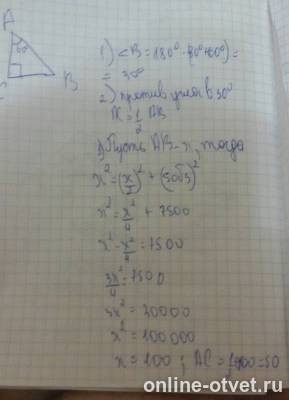 A
60°
B
C
1) <B = 180° - (90°+60°) =
= 30°
2) против угла в 30°
AC = 1/2 AB
3) Пусть AB - x, тогда
x² = (x/2)² + (50√3)²
x² = x²/4 + 7500
x² - x²/4 = 7500
3x²/4 = 7500
3x² = 30000
x² = 100000
x = 100 ; AC = 50
online-otvet.ru